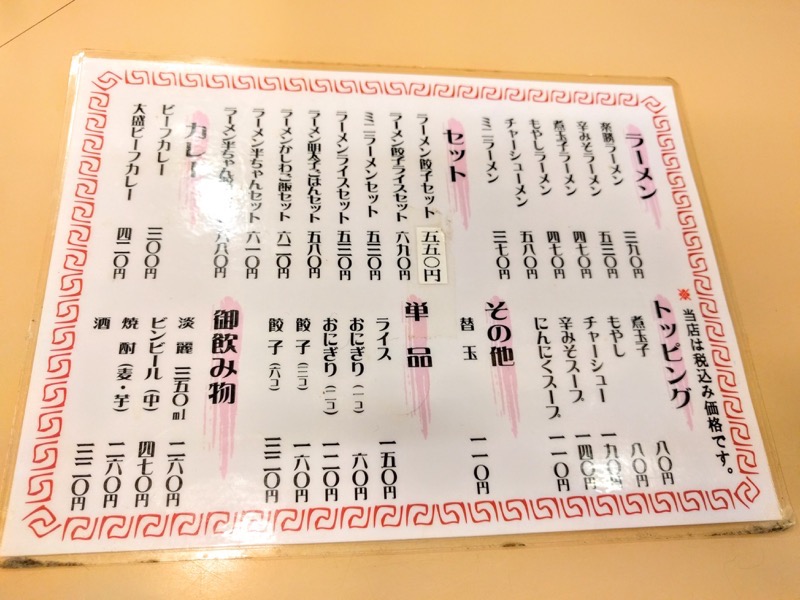 ラーメン
楽勝ラーメン 三九〇円
辛みそラーメン 五三〇円
煮玉子ラーメン 四七〇円
もやしラーメン 四七〇円
チャーシューメン 五八〇円
ミニラーメン 三七〇円
セット
ラーメン餃子セット 五五〇円
ラーメン餃子ライスセット 六九〇円
ミニラーメンセット 五三〇円
ラーメンライスセット 五三〇円
ラーメン明太ごはんセット 五八〇円
ラーメンかしわご飯セット 六二〇円
ラーメン半ちゃんセット 六一〇円
ラーメン半ちゃん 八〇円
カレー
ビーフカレー 三〇〇円
大盛ビーフカレー 四二〇円
※当店は税込み価格です。
トッピング
煮玉子 八〇円
もやし 八〇円
チャーシュー 一九〇円
辛みそスープ 一四〇円
にんにくスープ 一一〇円
その他
替玉 一一〇円
単品
ライス 一五〇円
おにぎり（一コ） 六〇円
おにぎり（二コ） 一二〇円
餃子（三コ） 一六〇円
餃子（六コ） 三二〇円
御飲み物
淡麗 三五〇ml 二六〇円
ビンビール（中） 四七〇円
焼酎（麦・芋） 二六〇円
酒 三二〇円